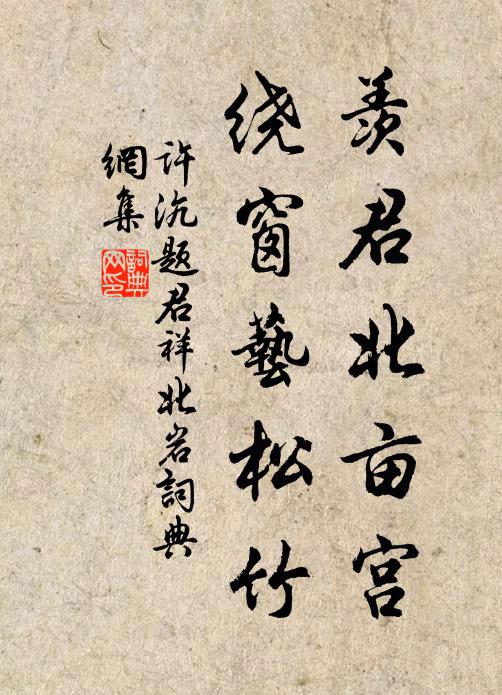 羡君北亩宫
绕窗藝松竹
许沉题君祥北岩詞典
網集
詞典
网印